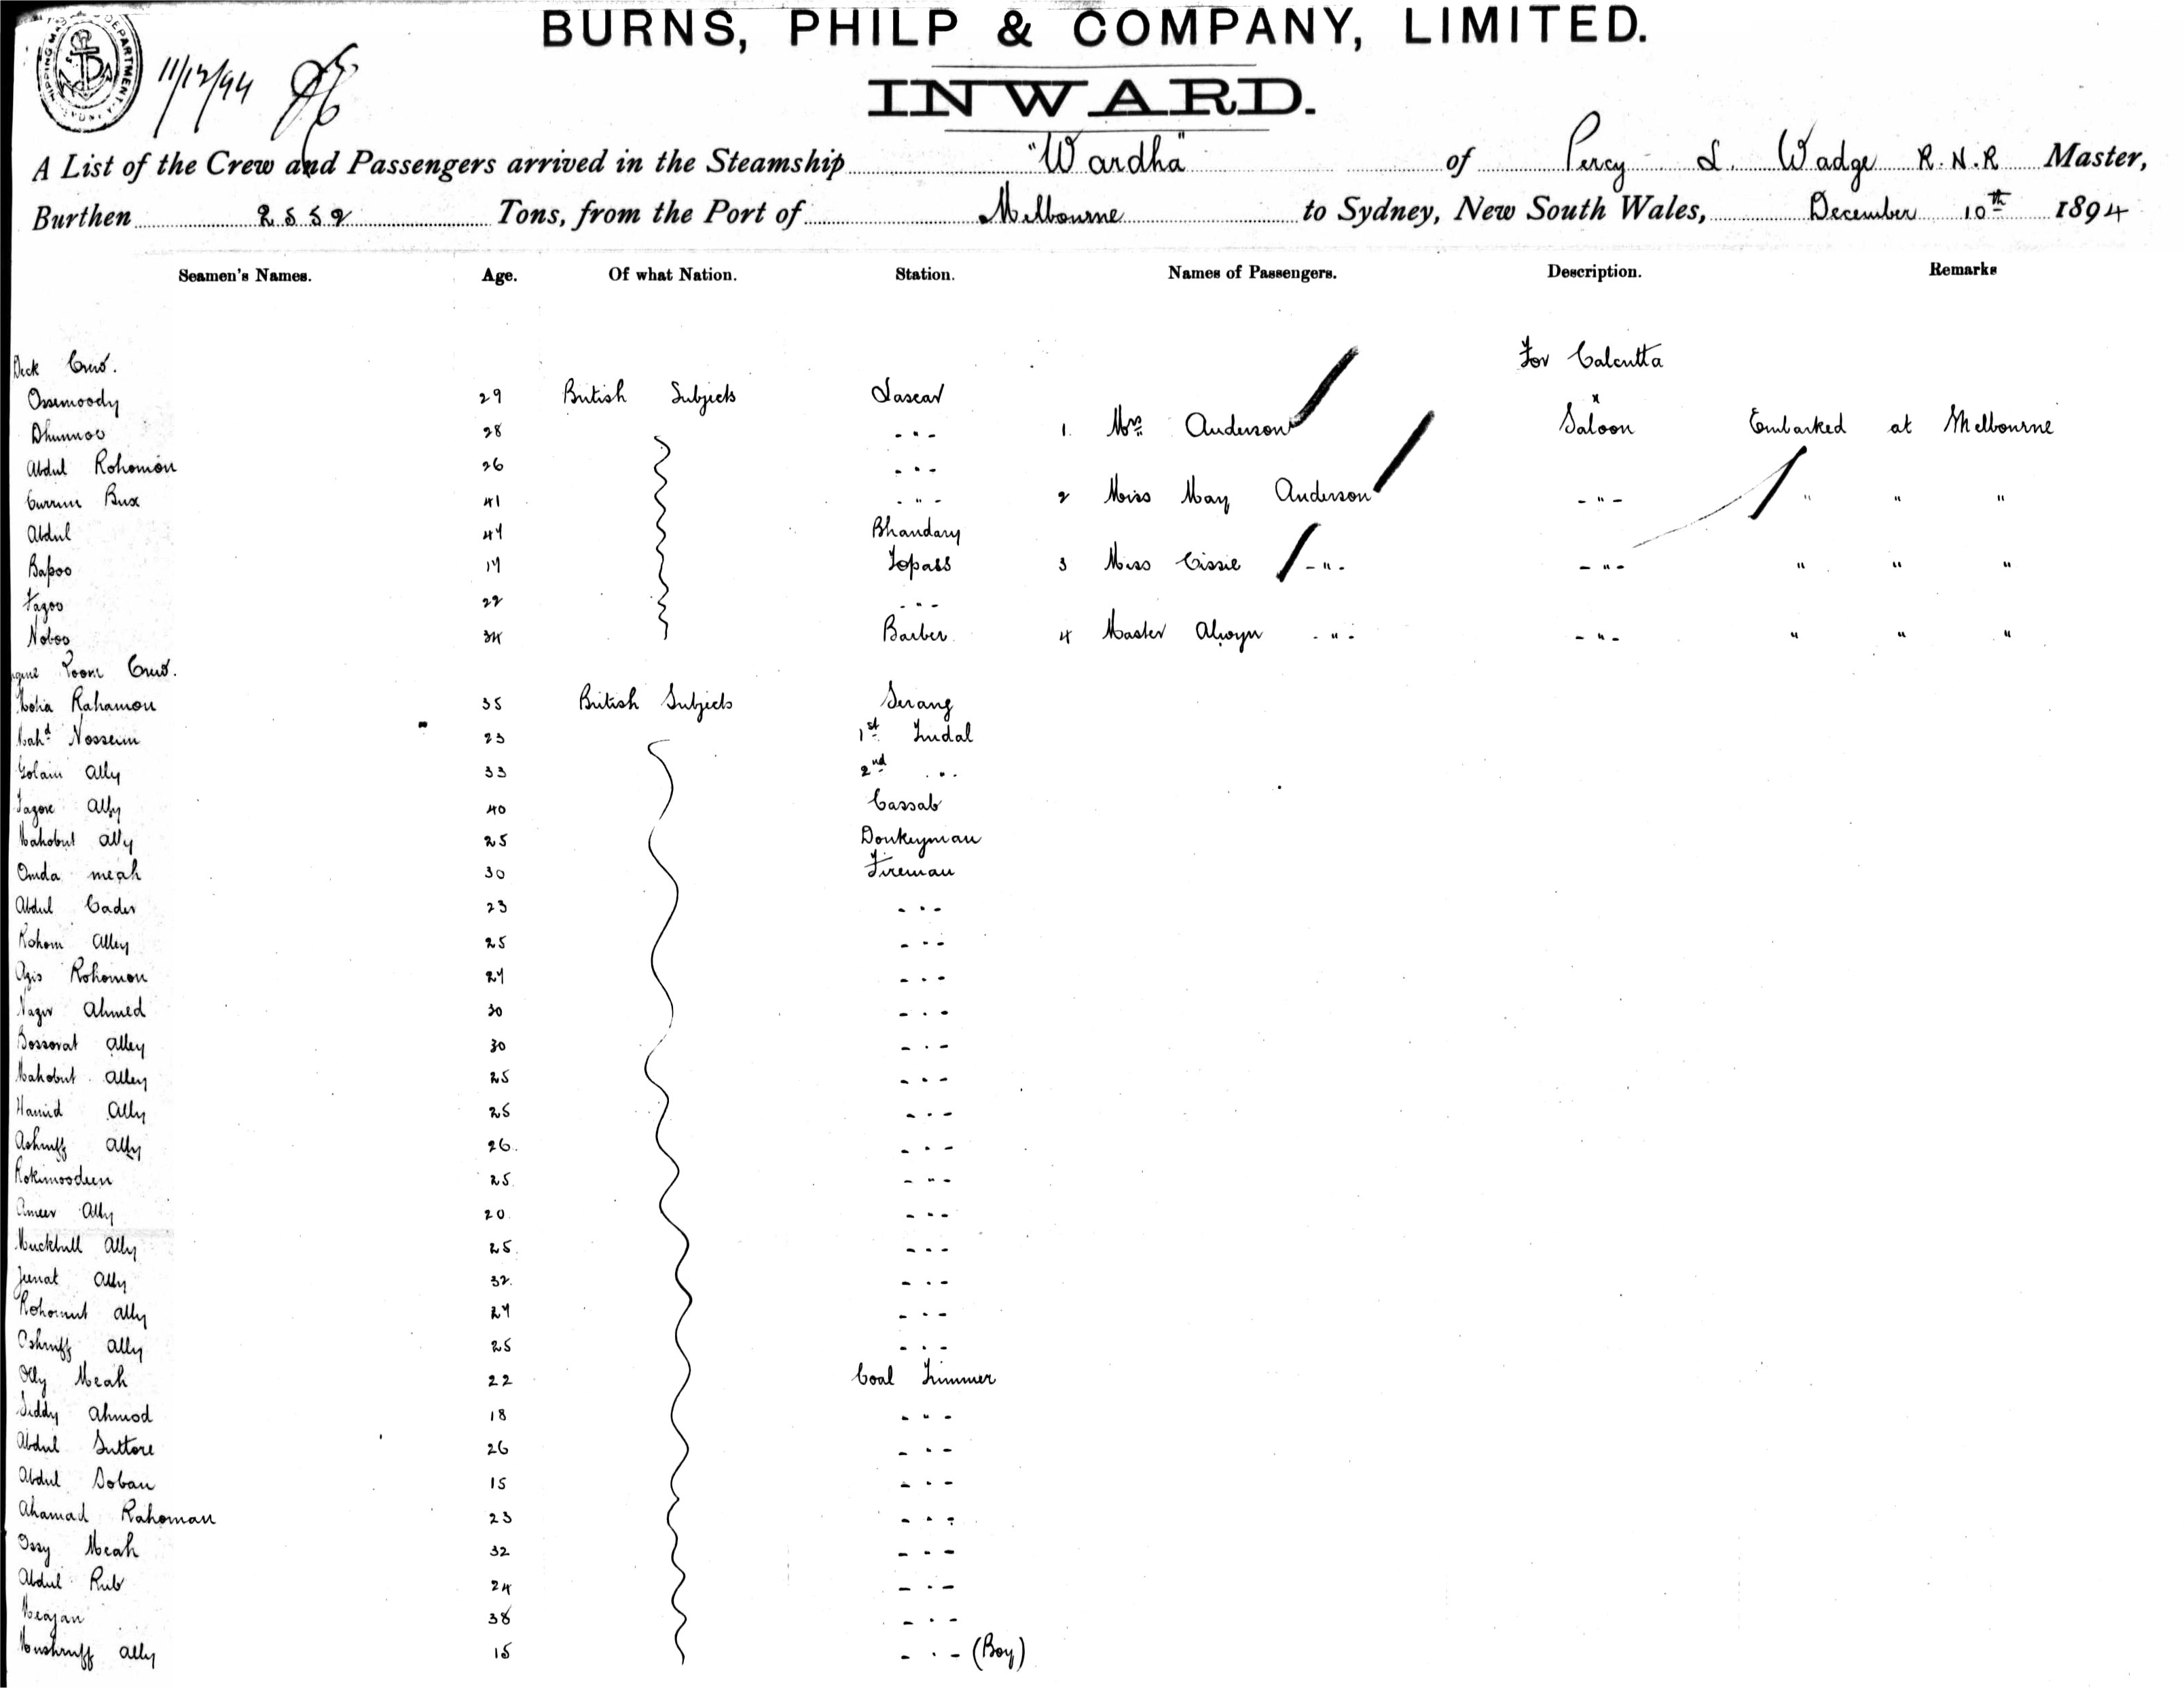 BURNS, PHILP & COMPANY, LIMITED.
INWARD.
11/12/94
A List of the Crew and Passengers arrived in the Steamship "Wardha" of Percy L. Wadge R.N.R Master,
Burthen Tons, from the Port of Melbourne to Sydney, New South Wales, December 10th 1894
Seamen's Names. Age. Of what Nation. Station. Names of Passengers. Description. Remarks
Deck Crew. For Calcutta
Ossemoody 29 British Subjects Lascar
Dhunnoo 28 - " - 1. Mrs Anderson Saloon Embarked at Melbourne
Abdul Rohomon 26 - " -
Currim Bux 41 - " - 2 Miss May Anderson - " - " " "
Abdul 47 Bhandary
Bapoo 17 Topass 3 Miss Cissie - " - - " - " " "
Fazoo 22 - " -
Noboo 34 Barber 4 Master Alwyn - " - - " - " " "
Room Crew.
Rahamon 35 British Subjects Serang
Nosseim 23 1st Tindal
Golam Ally 33 2nd "
Ally 40 Cassab
Mahobut Ally 25 Donkeyman
Omda meah 30 Fireman
Abdul Cader 23 - " -
Rohom Alley 25 - " -
Azis Rohomon 27 - " -
Nazir Ahmed 30 - " -
Bossorat Alley 30 - " -
Mahobut Alley 25 - " -
Hamid Ally 25 - " -
Ashruff Ally 26 - " -
Rokimoodeen 25 - " -
Ameer Ally 20 - " -
Muckbull Ally 25 - " -
Junat Ally 32 - " -
Rohomut Ally 27 - " -
Oshruff Ally 25 - " -
Olly Meah 22 Coal Trimmer
Siddy Ahmod 18 - " -
Abdul Suttore 26 - " -
Abdul Soban 15 - " -
Ahamad Rahoman 23 - " -
Ossy Meah 32 - " -
Abdul Rub 24 - " -
Meajan 38 - " -
Mushruff Ally 15 - " - (Boy)